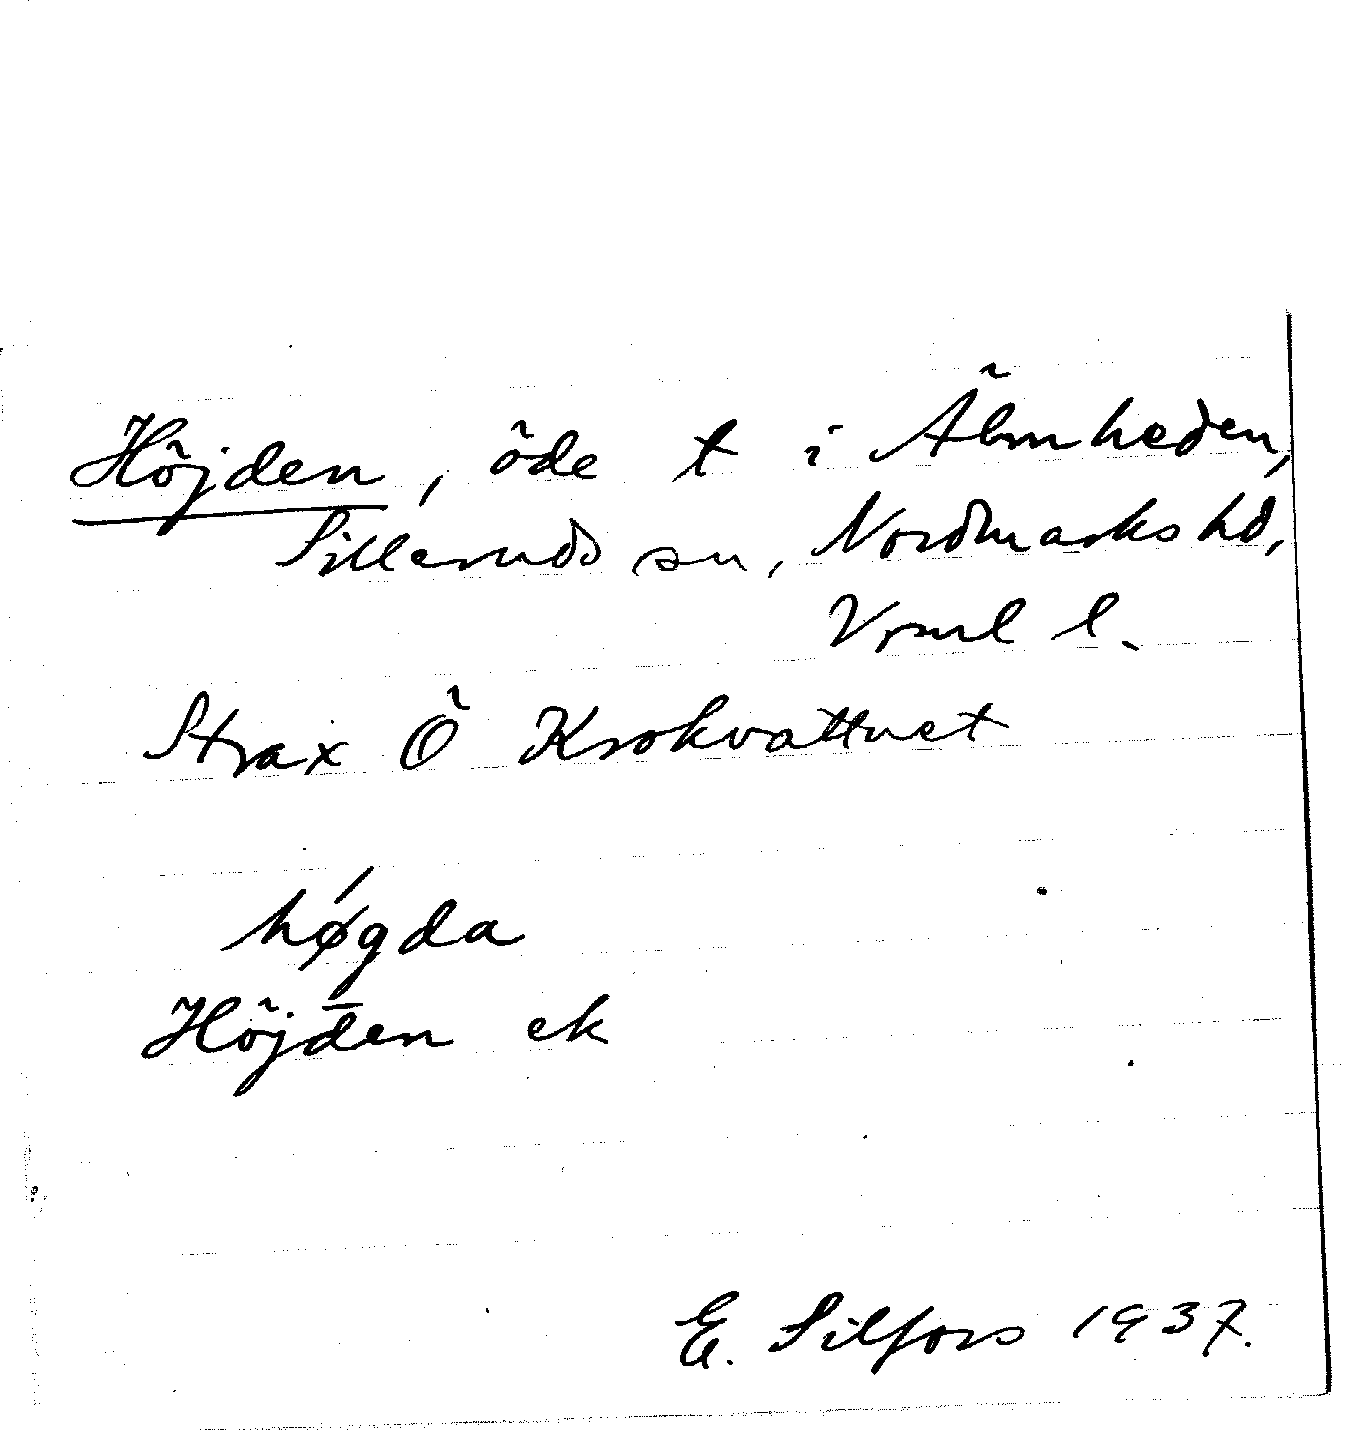 Höjden, öde t i Älmheden,
Silleruds sn, Nordmarks hd,
Vrml l.
Strax Ö Krokvattnet
høgda
Höjden ek
E. Silfors 1937.